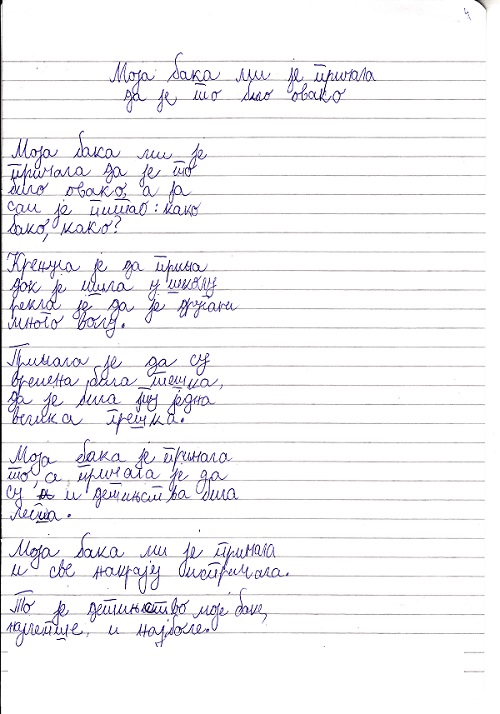 4
Моја бака ми је причала
да је то било овако
Моја бака ми је
причала да је то
било овако, а ја
сам је питао: како
бако, како?
Кренула је да прича
док је ишла у школу
рекла је да је другари
много волу.
Причала је да су
времена била тешка,
да је била једна
велика грешка.
Моја бака је причала
то, а причала је да
су и детињства била
лепша.
Моја бака ми је причала
и све накрају испричала.
То је детињство моје баке,
најлепше, и најбоље.